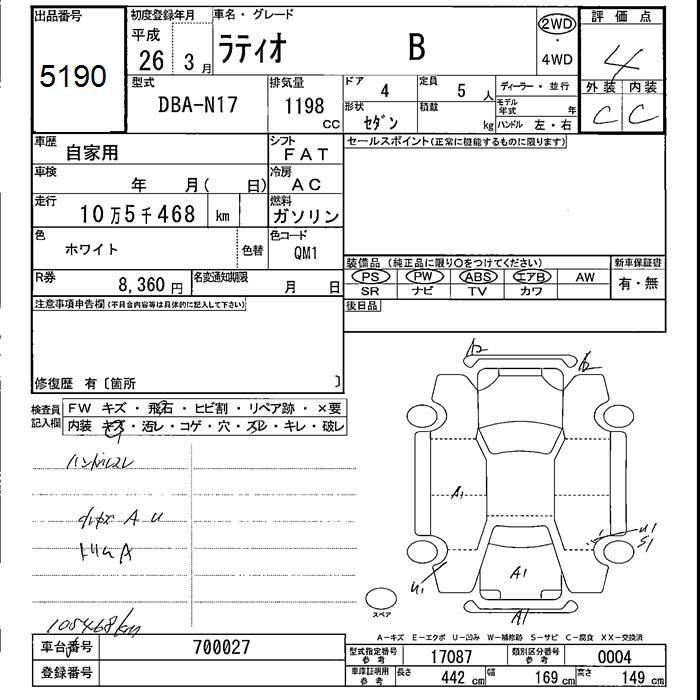 出品番号
5190
初度登録年月
平成
26 3 月
車名・グレード
ラティオ B
2WD
・
4WD
評価点
4
外装 内装
C C
型式
DBA-N17
排気量
1198
CC
ドア
4
定員
5 人
形状
セダン
積載
kg
ディーラー・並行
モデル年式 年
ハンドル 左・右
車歴
自家用
シフト
FAT
車検
年 月( 日)
冷房
AC
走行
10万5千468 km
燃料
ガソリン
色
ホワイト
色替
色コード
QM1
R券
8,360 円
名変通知期限
月 日
セールスポイント(正常に機能するものに限ります)
装備品(純正品に限り○をつけてください)
PS PW ABS エアB AW
SR ナビ TV カワ
新車保証書
有・無
後日品
注意事項申告欄(不具合内容等は具体的に記入して下さい)
修復歴 有〔箇所 〕
検査員記入欄
FW キズ・飛石・ヒビ割・リペア跡・×要
内装 キズ・汚レ・コゲ・穴・スレ・キレ・破レ
ハンドルスレ
トリムA
105468km
A2
A1
U1
S1
U1
A1
A1
スペア
A−キズ E−エクボ U−凹み W−補修跡 S−サビ C−腐食 XX−交換済
車台番号
700027
登録番号
型式指定番号
参考
17087
類別区分番号
参考
0004
車庫証明用
参考
長さ 442 cm 幅 169 cm 高さ 149 cm